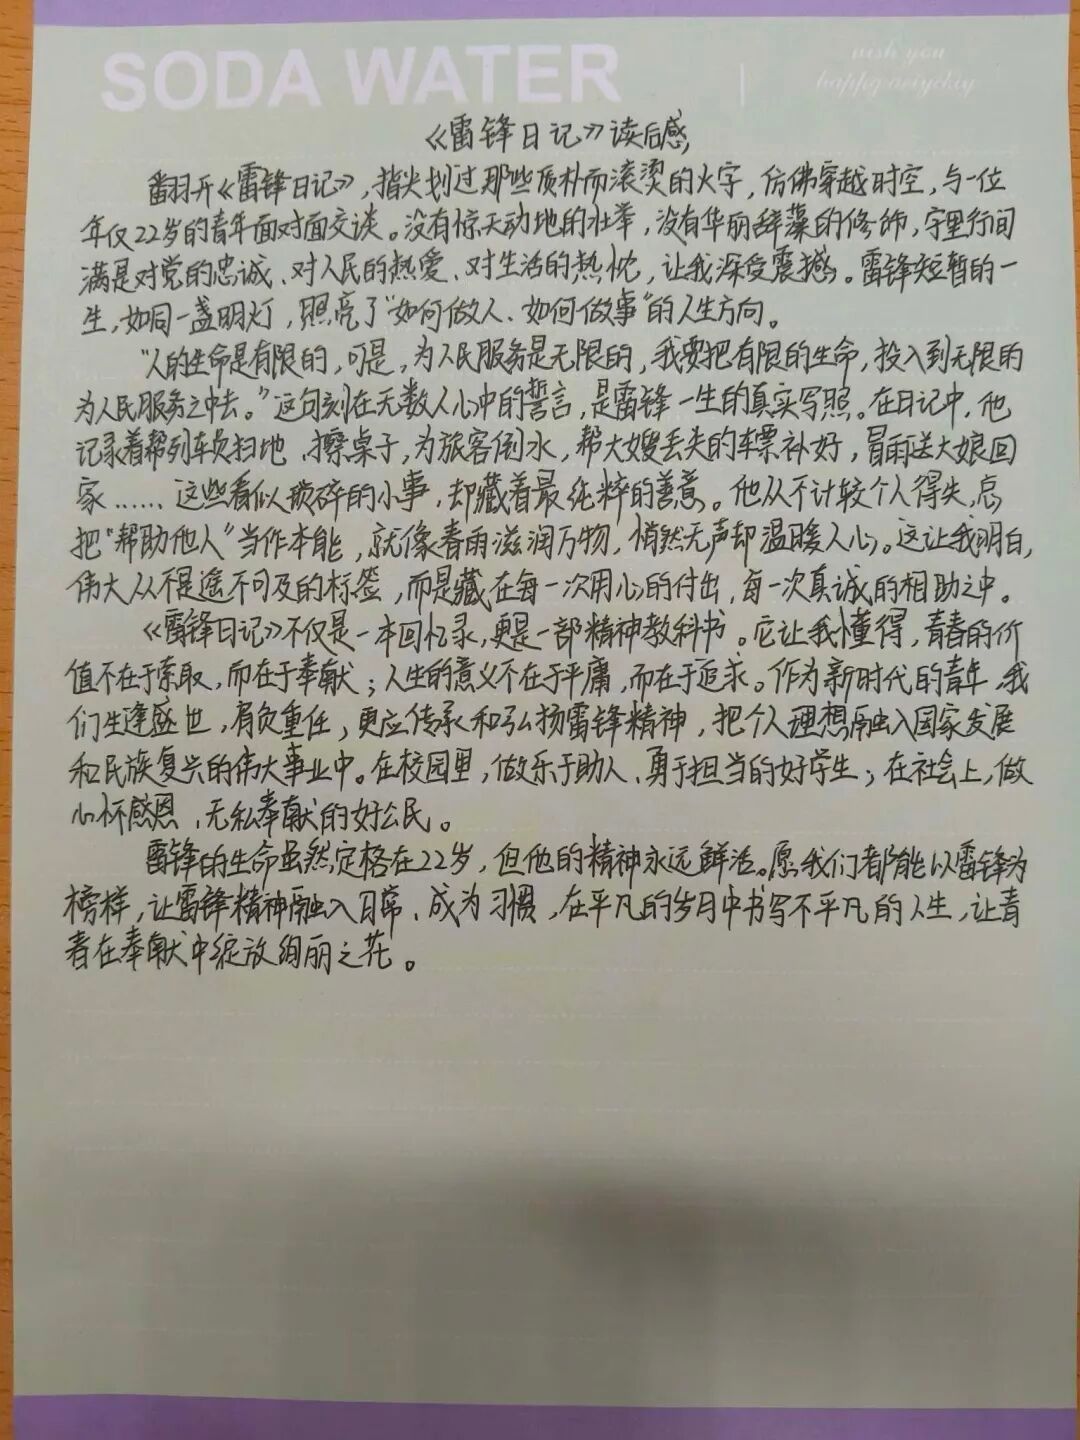 SODA WATER
wish you
happy
《雷锋日记》读后感
翻开《雷锋日记》，指尖划过那些质朴而滚烫的文字，仿佛穿越时空，与一位
年仅22岁的青年面对面交谈。没有惊天动地的壮举，没有华丽辞藻的修饰，字里行间
满是对党的忠诚、对人民的热爱、对生活的热忱，让我深受震撼。雷锋短暂的一
生，如同一盏明灯，照亮了“如何做人、如何做事”的人生方向。
“人的生命是有限的，可是，为人民服务是无限的，我要把有限的生命，投入到无限的
为人民服务之中去。”这句刻在无数人心中的誓言，是雷锋一生的真实写照。在日记中，他
记录着帮列车员扫地、擦桌子，为旅客倒水，帮大嫂丢失的车票补好，冒雨送大娘回
家……这些看似琐碎的小事，却藏着最纯粹的善意。他从不计较个人得失，总
把“帮助他人”当作本能，就像春雨滋润万物，悄然无声却温暖人心。这让我明白，
伟大从不是遥不可及的标签，而是藏在每一次用心的付出，每一次真诚的相助之中。
《雷锋日记》不仅是一本回忆录，更是一部精神教科书。它让我懂得，青春的价
值不在于索取，而在于奉献；人生的意义不在于平庸，而在于追求。作为新时代的青年，我
们生逢盛世，肩负重任，更应传承和弘扬雷锋精神，把个人理想融入国家发展
和民族复兴的伟大事业中。在校园里，做乐于助人、勇于担当的好学生；在社会上，做
心怀感恩、无私奉献的好公民。
雷锋的生命虽然定格在22岁，但他的精神永远鲜活。愿我们都能以雷锋为
榜样，让雷锋精神融入日常、成为习惯，在平凡的岁月中书写不平凡的人生，让青
春在奉献中绽放绚丽之花。